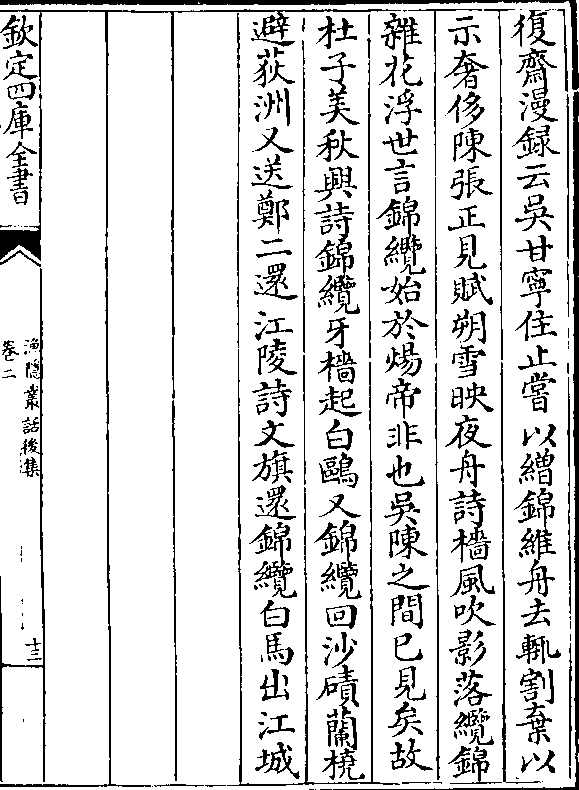 復齋漫録云吳甘寧住止嘗以繒錦維舟去輒割棄以
示奢侈陳張正見賦朔雪映夜舟詩檣風吹影落纜錦
雜花浮世言錦纜始於煬帝非也吳陳之間已見矣故
杜子美秋興詩錦纜牙檣起白鷗又錦纜回沙磧蘭橈
避荻洲又送鄭二還江陵詩文旗還錦纜白馬出江城
欽定四庫全書
漁隱叢話後集
卷二
十三